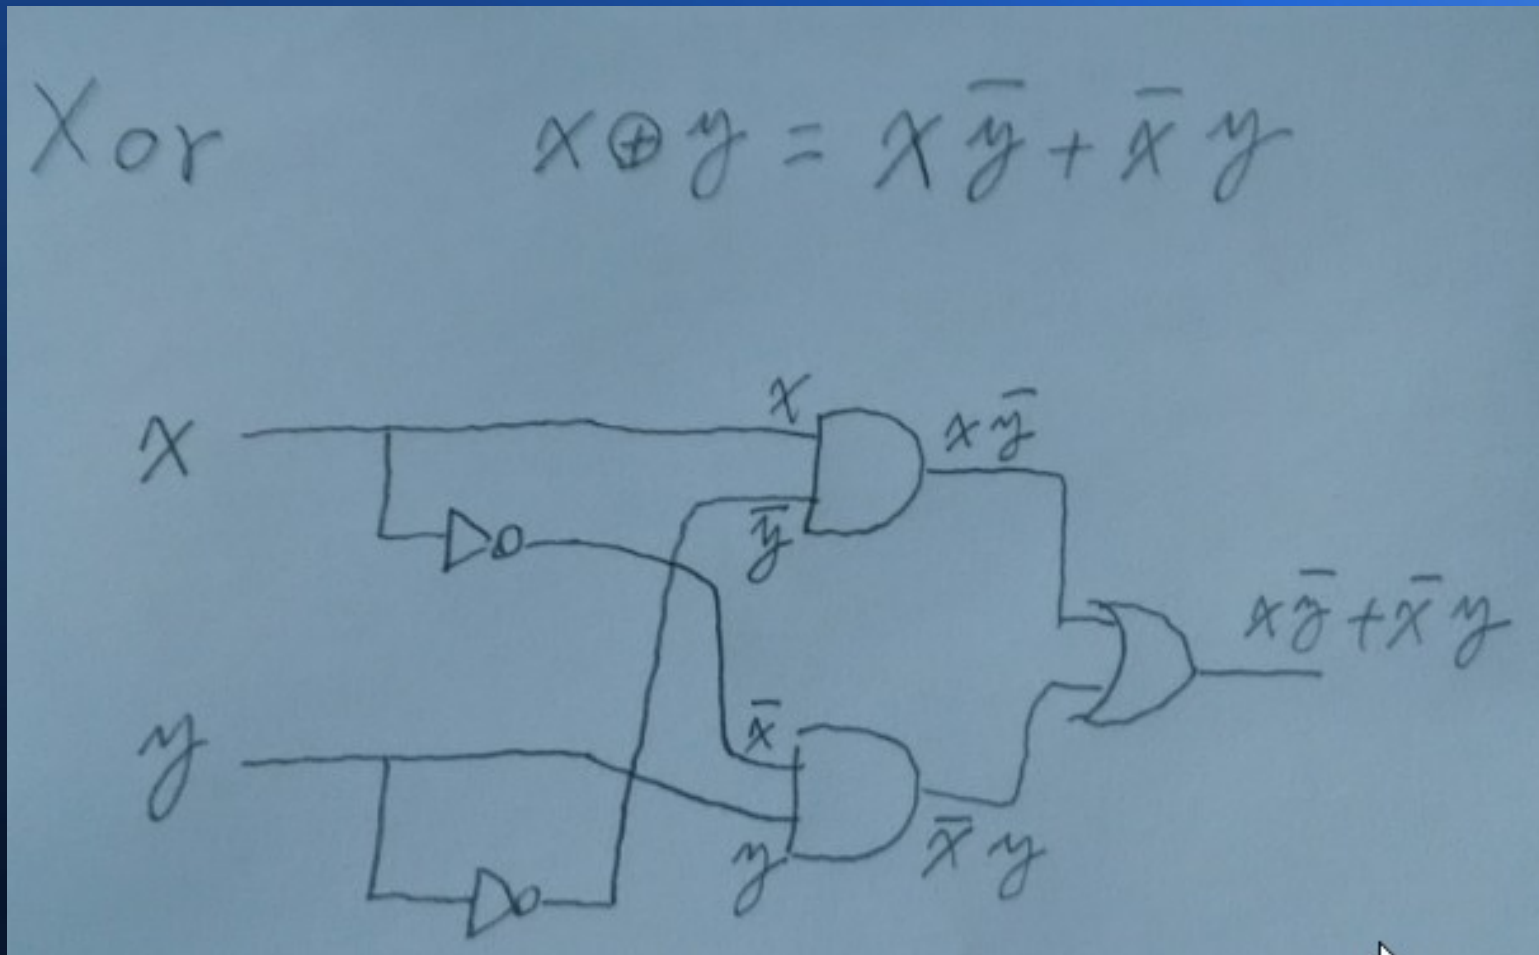 Xor x ⊕ y = x y̅ + x̅ y
x
x y̅
x
y̅
x y̅ + x̅ y
x̅
y
x̅ y
y